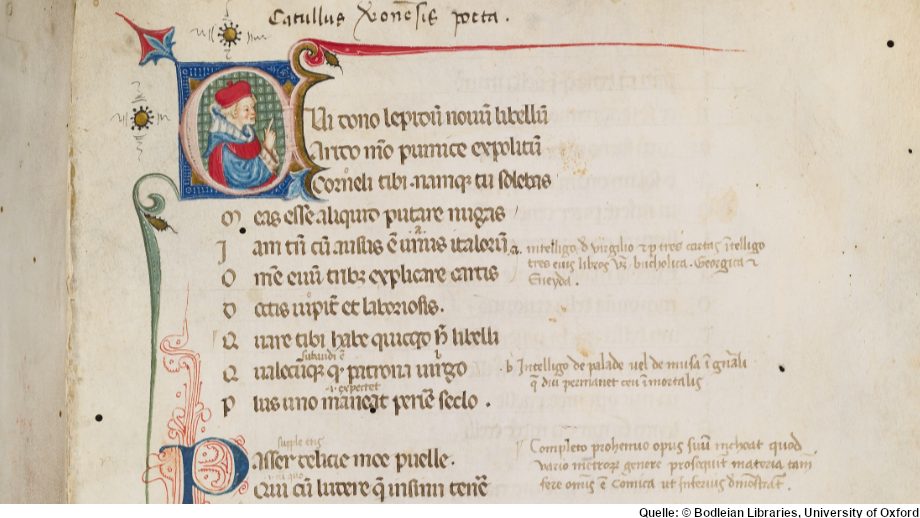 Catullus Veronensis poeta.
Qui dono lepidum novum libellum
Arido modo pumice expolitum
Corneli tibi. namque tu solebas
Meas esse aliquid putare nugas
Iam tum cum ausus es unus italorum
Omne evum tribus explicare cartis
Doctis iupiter et laboriosis.
Quare tibi habe quicquid hoc libelli
subaudi est
Qualecumque quod patrona virgo
Plus uno maneat perenne seclo.
a. intelligo de virgilio et per tres cartas intelligo
tres eius libros videlicet bucholica. Georgica et
Eneyda.
b. Intelligo de palade vel de musa in generali
que diu permanet ceu immortalis
Passer delicie mee puelle.
Qui cum ludere quem in sinu tenere
Completo prohemio opus suum inchoat quod
vario metrorum genere prosequitur materia tamen
fere omnis est Comica ut inferius demonstratur.
Quelle: © Bodleian Libraries, University of Oxford